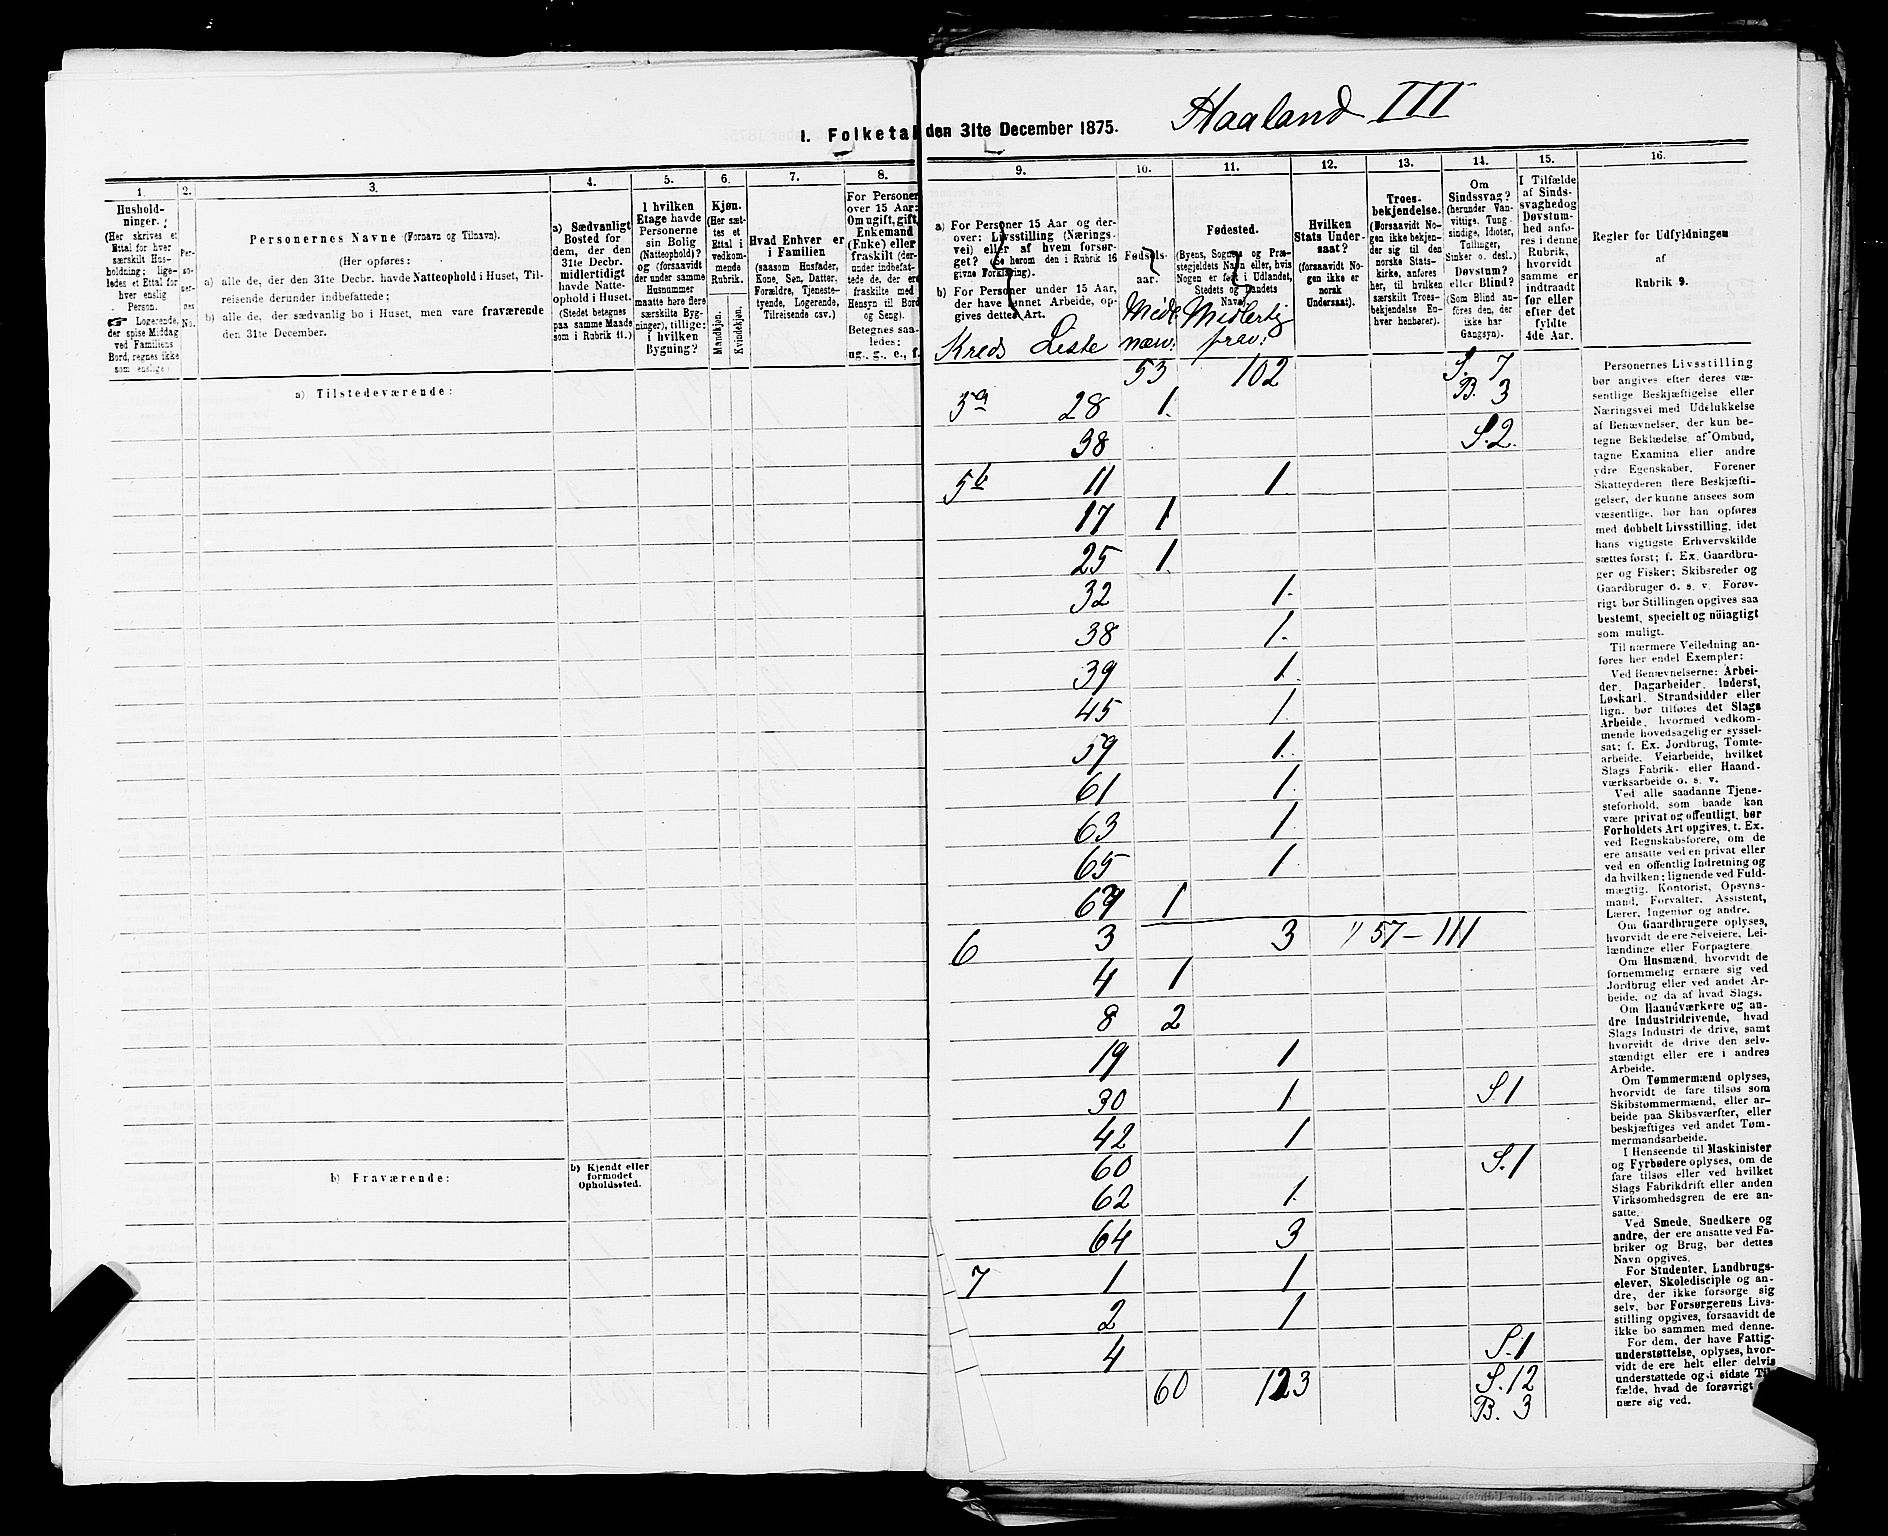 Haaland III
1. Folketal den 31te December 1875.
1.
Hushold-
ninger.
(Her skrives et
Ettal for hver
særskilt Hus-
holdning; lige-
ledes et Ettal for
hver enslig
Person.
Logerende,
der spise Middag
ved Familiens
Bord, regnes ikke
som enslige)
2.
Per-
so-
ner-
nes
No.
3.
Personernes Navne (Fornavn og Tilnavn).
(Her opføres:
a) alle de, der den 31te Decbr. havde Natteophold i Huset, Til-
reisende derunder indbefattede;
b) alle de, der sædvanlig bo i Huset, men vare fraværende
den 31te December.
4.
a) Sædvanligt
Bosted for
dem, der den
31te Decbr.
midlertidigt
havde Natte-
ophold i Huset.
(Stedet betegnes
paa samme Maade
som i Rubrik 11.)
5.
I hvilken
Etage havde
Personerne
sin Bolig
(Natteophold)?
og (forsaavidt
der under samme
Husnummer
maatte høre flere
særskilte Byg-
ninger), tillige:
i hvilken
Bygning?
6.
Kjøn.
(Her sæt-
tes et
Ettal i
vedkom-
mende
Rubrik.
Mandkjøn.
Kvindekjøn.
7.
Hvad Enhver er
i Familien
(saasom Husfader,
Kone, Søn, Datter,
Forældre, Tjeneste-
tyende, Logerende,
Tilreisende osv.)
8.
For Personer
over 15 Aar:
Om ugift, gift,
Enkemand
(Enke) eller
fraskilt (der-
under indbefat-
tede de, der ere
fraskilte med
Hensyn til Bord
og Seng).
Betegnes saa-
ledes:
ug., g., e., f.
9.
a) For Personer 15 Aar og der-
over: Livsstilling (Nærings-
vei) eller af hvem forsør-
get? (Se herom den i Rubrik 16
givne Forklaring).
b) For Personer under 15 Aar,
der have lønnet Arbeide, op-
gives dettes Art.
Kreds Liste
10.
Fødsels-
aar.
Midl.
nærv:
11.
Fødested.
(Byens, Sognets og Præ-
stegjeldets Navn eller, hvis
Nogen er født i Udlandet,
Stedets og Landets
Navn).
Midlertig
frav:
12.
Hvilken
Stats Under-
saat?
(forsaavidt No-
gen ikke er
norsk
Undersaat).
13.
Troes-
bekjendelse.
(Forsaavidt No-
gen ikke bekjen-
der sig til den
norske Stats-
kirke, anføres
her, til hvilken
særskilt Troes-
bekjendelse En-
hver henhører).
14.
Om
Sindssvag?
(herunder Van-
vittige, Tung-
sindige, Idioter,
Tullinger,
Sinker o. desl.)
Døvstum?
eller Blind?
(Som Blind an-
føres den, der
ikke har
Gangsyn).
15.
I Tilfælde
af Sinds-
svaghed og
Døvstum-
hed anfø-
res i denne
Rubrik,
hvorvidt
samme er
indtraadt
før eller
efter det
fyldte
4de Aar.
16.
Regler for Udfyldningen
af
Rubrik 9.
a) Tilstedeværende:
b) Fraværende:
b) Kjendt eller
formodet
Opholdssted.
53 102 S. 7
B. 3
5a 28 1.
38 S. 2.
5b 11 1.
17 1
25 1.
32 1.
38 1.
39 1.
45 1.
59 1.
61 1.
63 1.
65 1.
69 1
6 3 3 57 - 111
4 1
8 2
19 1
30 1. S 1
42 1
60 S. 1
62 1.
64 3
7 1 1
2 1
4 S. 1
60 123 S. 12
B. 3
Personernes Livsstilling
bør angives efter deres væ-
sentlige Beskjæftigelse eller
Næringsvei med Udelukkelse
af Benævnelser, der kun be-
tegne Beklædelse af Ombud,
tagne Examina eller andre
ydre Egenskaber. Forener
Skatteyderen flere Beskjæfti-
gelser, der kunne ansees som
væsentlige, bør han opføres
med dobbelt Livsstilling, idet
hans vigtigste Erhvervskilde
sættes først; f. Ex. Gaardbru-
ger og Fisker; Skibsreder og
Gaardbruger o. s. v. Forøv-
rigt bør Stillingen opgives saa
bestemt, specielt og nöiagtigt
som muligt.
Til nærmere Veiledning an-
føres her endel Exempler:
Ved Benævnelserne: Arbei-
der, Dagarbeider, Inderst,
Løskarl, Strandsidder eller
lign. bør tilføres det Slags
Arbeide, hvormed vedkom-
mende hovedsagelig er syssel-
sat; f. Ex. Jordbrug, Tomte-
arbeide, Veiarbeide, hvilket
Slags Fabrik- eller Haand-
værksarbeide o. s. v.
Ved alle saadanne Tjene-
steforhold, som baade kan
være privat og offentligt, bør
Forholdets Art opgives, t. Ex.
ved Regnskabsførere, om de
ere ansatte ved en privat eller
ved en offentlig Indretning og
da hvilken; lignende ved Fuld-
mægtig, Kontorist, Opsyns-
mand, Forvalter, Assistent,
Lærer, Ingeniør og andre.
Om Gaardbrugere oplyses,
hvorvidt de ere Selveiere, Lei-
lændinge eller Forpagtere
Om Husmænd, hvorvidt de
fornemmelig ernære sig ved
Jordbrug eller ved andet Ar-
beide, og da af hvad Slags.
Om Haandværkere og an-
dre Industridrivende, hvad
Slags Industri de drive, samt
hvorvidt de drive den selv-
stændigt eller ere i andres
Arbeide.
Om Tømmermænd oplyses,
hvorvidt de fare tilsøs som
Skibstømmermænd, eller ar-
beide paa Skibsværfter, eller
beskjæftiges ved andet Tøm-
mermandsarbeide.
I Henseende til Maskinister
og Fyrbødere oplyses, om de
fare tilsøs eller ved hvilket
Slags Fabrikdrift eller anden
Virksomhedsgren de ere an-
satte.
Ved Smede, Snedkere og
andre, der ere ansatte ved Fa-
briker og Brug, bør dettes
Navn opgives.
For Studenter, Landbrugs-
elever, Skoledisciple og an-
dre, der ikke forsørge sig
selv, bør Forsørgerens Livs-
stilling opgives, forsaavidt de
ikke bo sammen med denne.
For dem, der have Fattig-
understøttelse, oplyses, hvor-
vidt de ere helt eller delvis
understøttede og i sidste Til-
fælde, hvad de forøvrigt
nære sig ved.